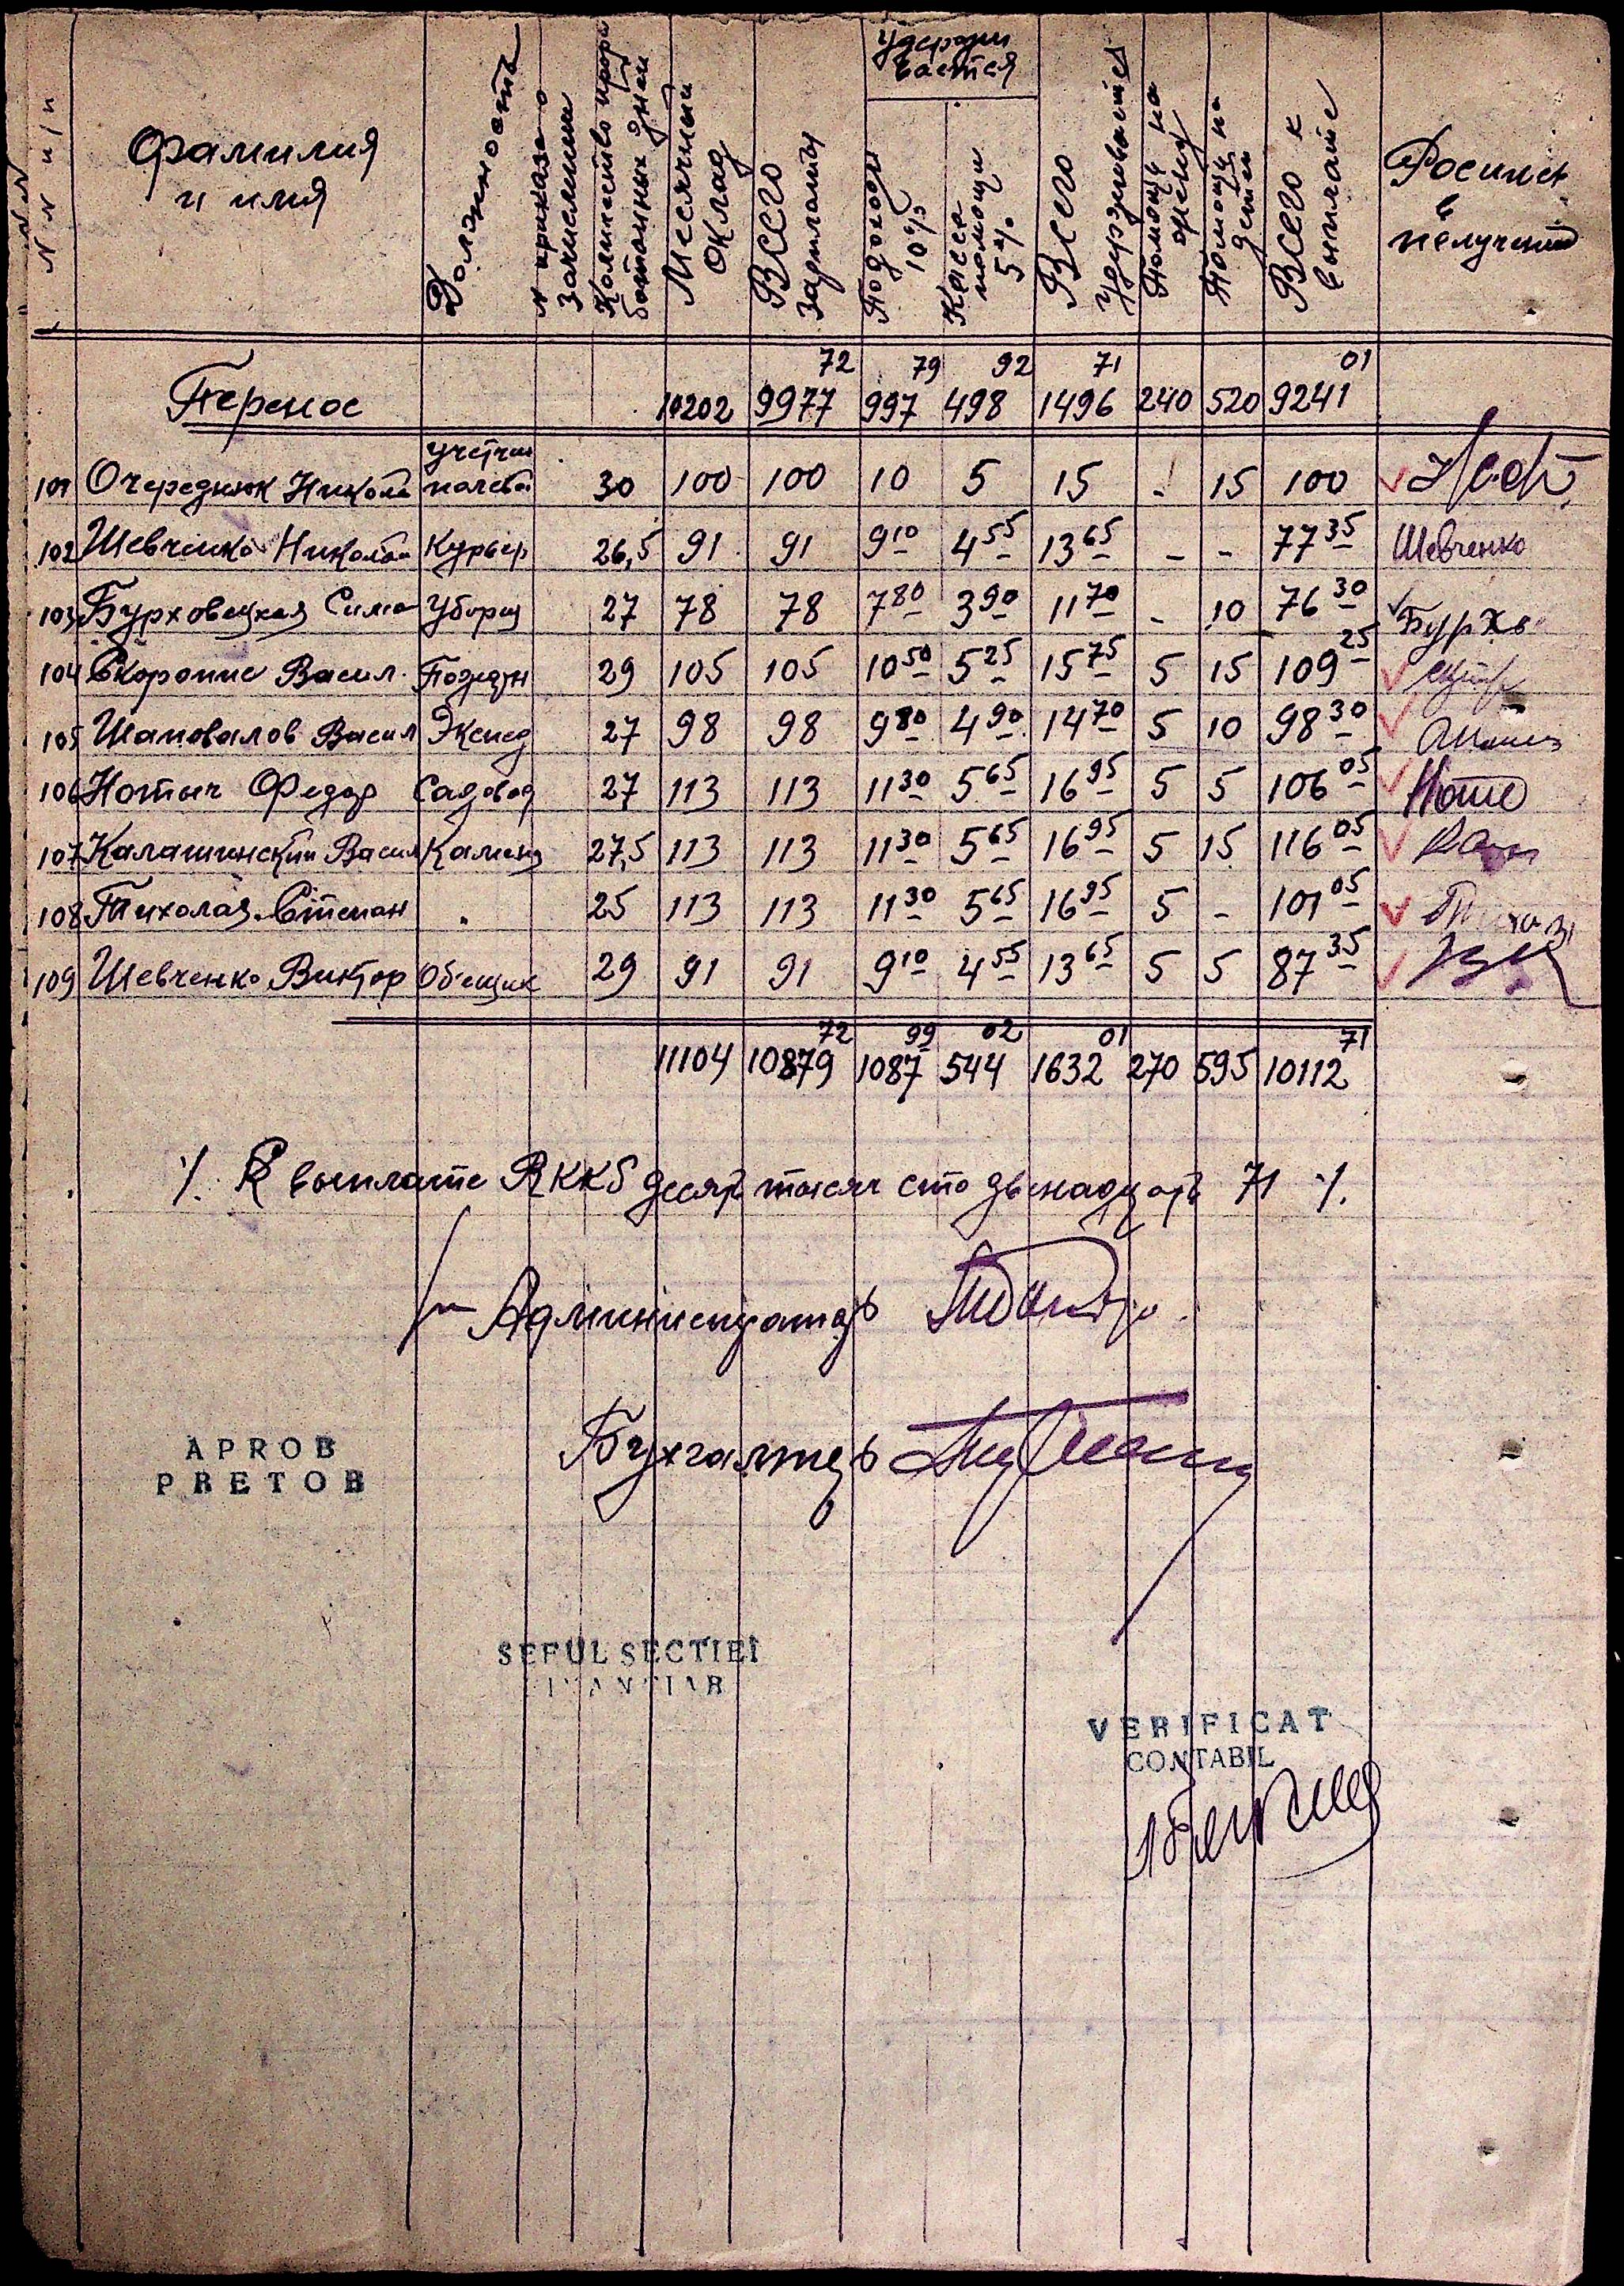 №№ п/п Фамилия и имя Должность № приказа о зачислении Количество прора ботанных дней Месячный оклад Всего зарплаты Удержи вается Подоход 10% Касса помощи 5% Всего удерживается Помощь на жену Помощь на детей Всего к выплате Роспись в получении
Перенос 10202 9977 72 997 79 498 92 1496 71 240 520 9241 01
101 Очереднюк Никола учетчик полевой 30 100 100 10 5 15 - 15 100
102 Шевченко Николай Курьер 26,5 91 91 9 10 4 55 13 65 - - 77 35 Шевченко
103 Бурховецкая Сима Уборщ 27 78 78 7 80 3 90 11 70 - 10 76 30 Бурхов
104 Скоропис Васил. 29 105 105 10 50 5 25 15 75 5 15 109 25
105 Шаповалов Васил Экспед 27 98 98 9 80 4 90 14 70 5 10 98 30
106 Нотыч Федор Садовод 27 113 113 11 30 5 65 16 95 5 5 106 05
107 Калашинский Васил Каменщ 27,5 113 113 11 30 5 65 16 95 5 15 116 05
108 Тихолаз Степан " 25 113 113 11 30 5 65 16 95 5 - 101 05
109 Шевченко Виктор Объещик 29 91 91 9 10 4 55 13 65 5 5 87 35
11104 10879 72 1087 99 544 02 1632 01 270 595 10112 71
К выплате RKKS десять тысяч сто двенадцать 71
Администратор
Бухгалтер
APROB
PRETOR
SEFUL SECTIEI
FINANTIAR
VERIFICAT
CONTABIL